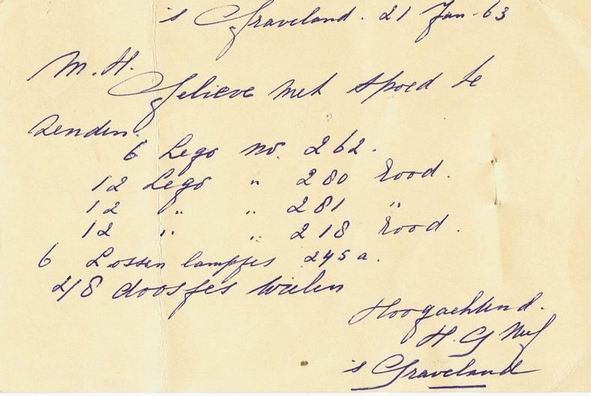 's Graveland. 21 Jan-63
M.H.
Gelieve met spoed te
zenden.
6 Lego no. 262.
12 Lego " 280 rood.
12 " " 281 "
12 " " 218 rood.
6 Lossen lampjes 245a.
48 doosjes wielen
Hoogachtend.
H. G
's Graveland